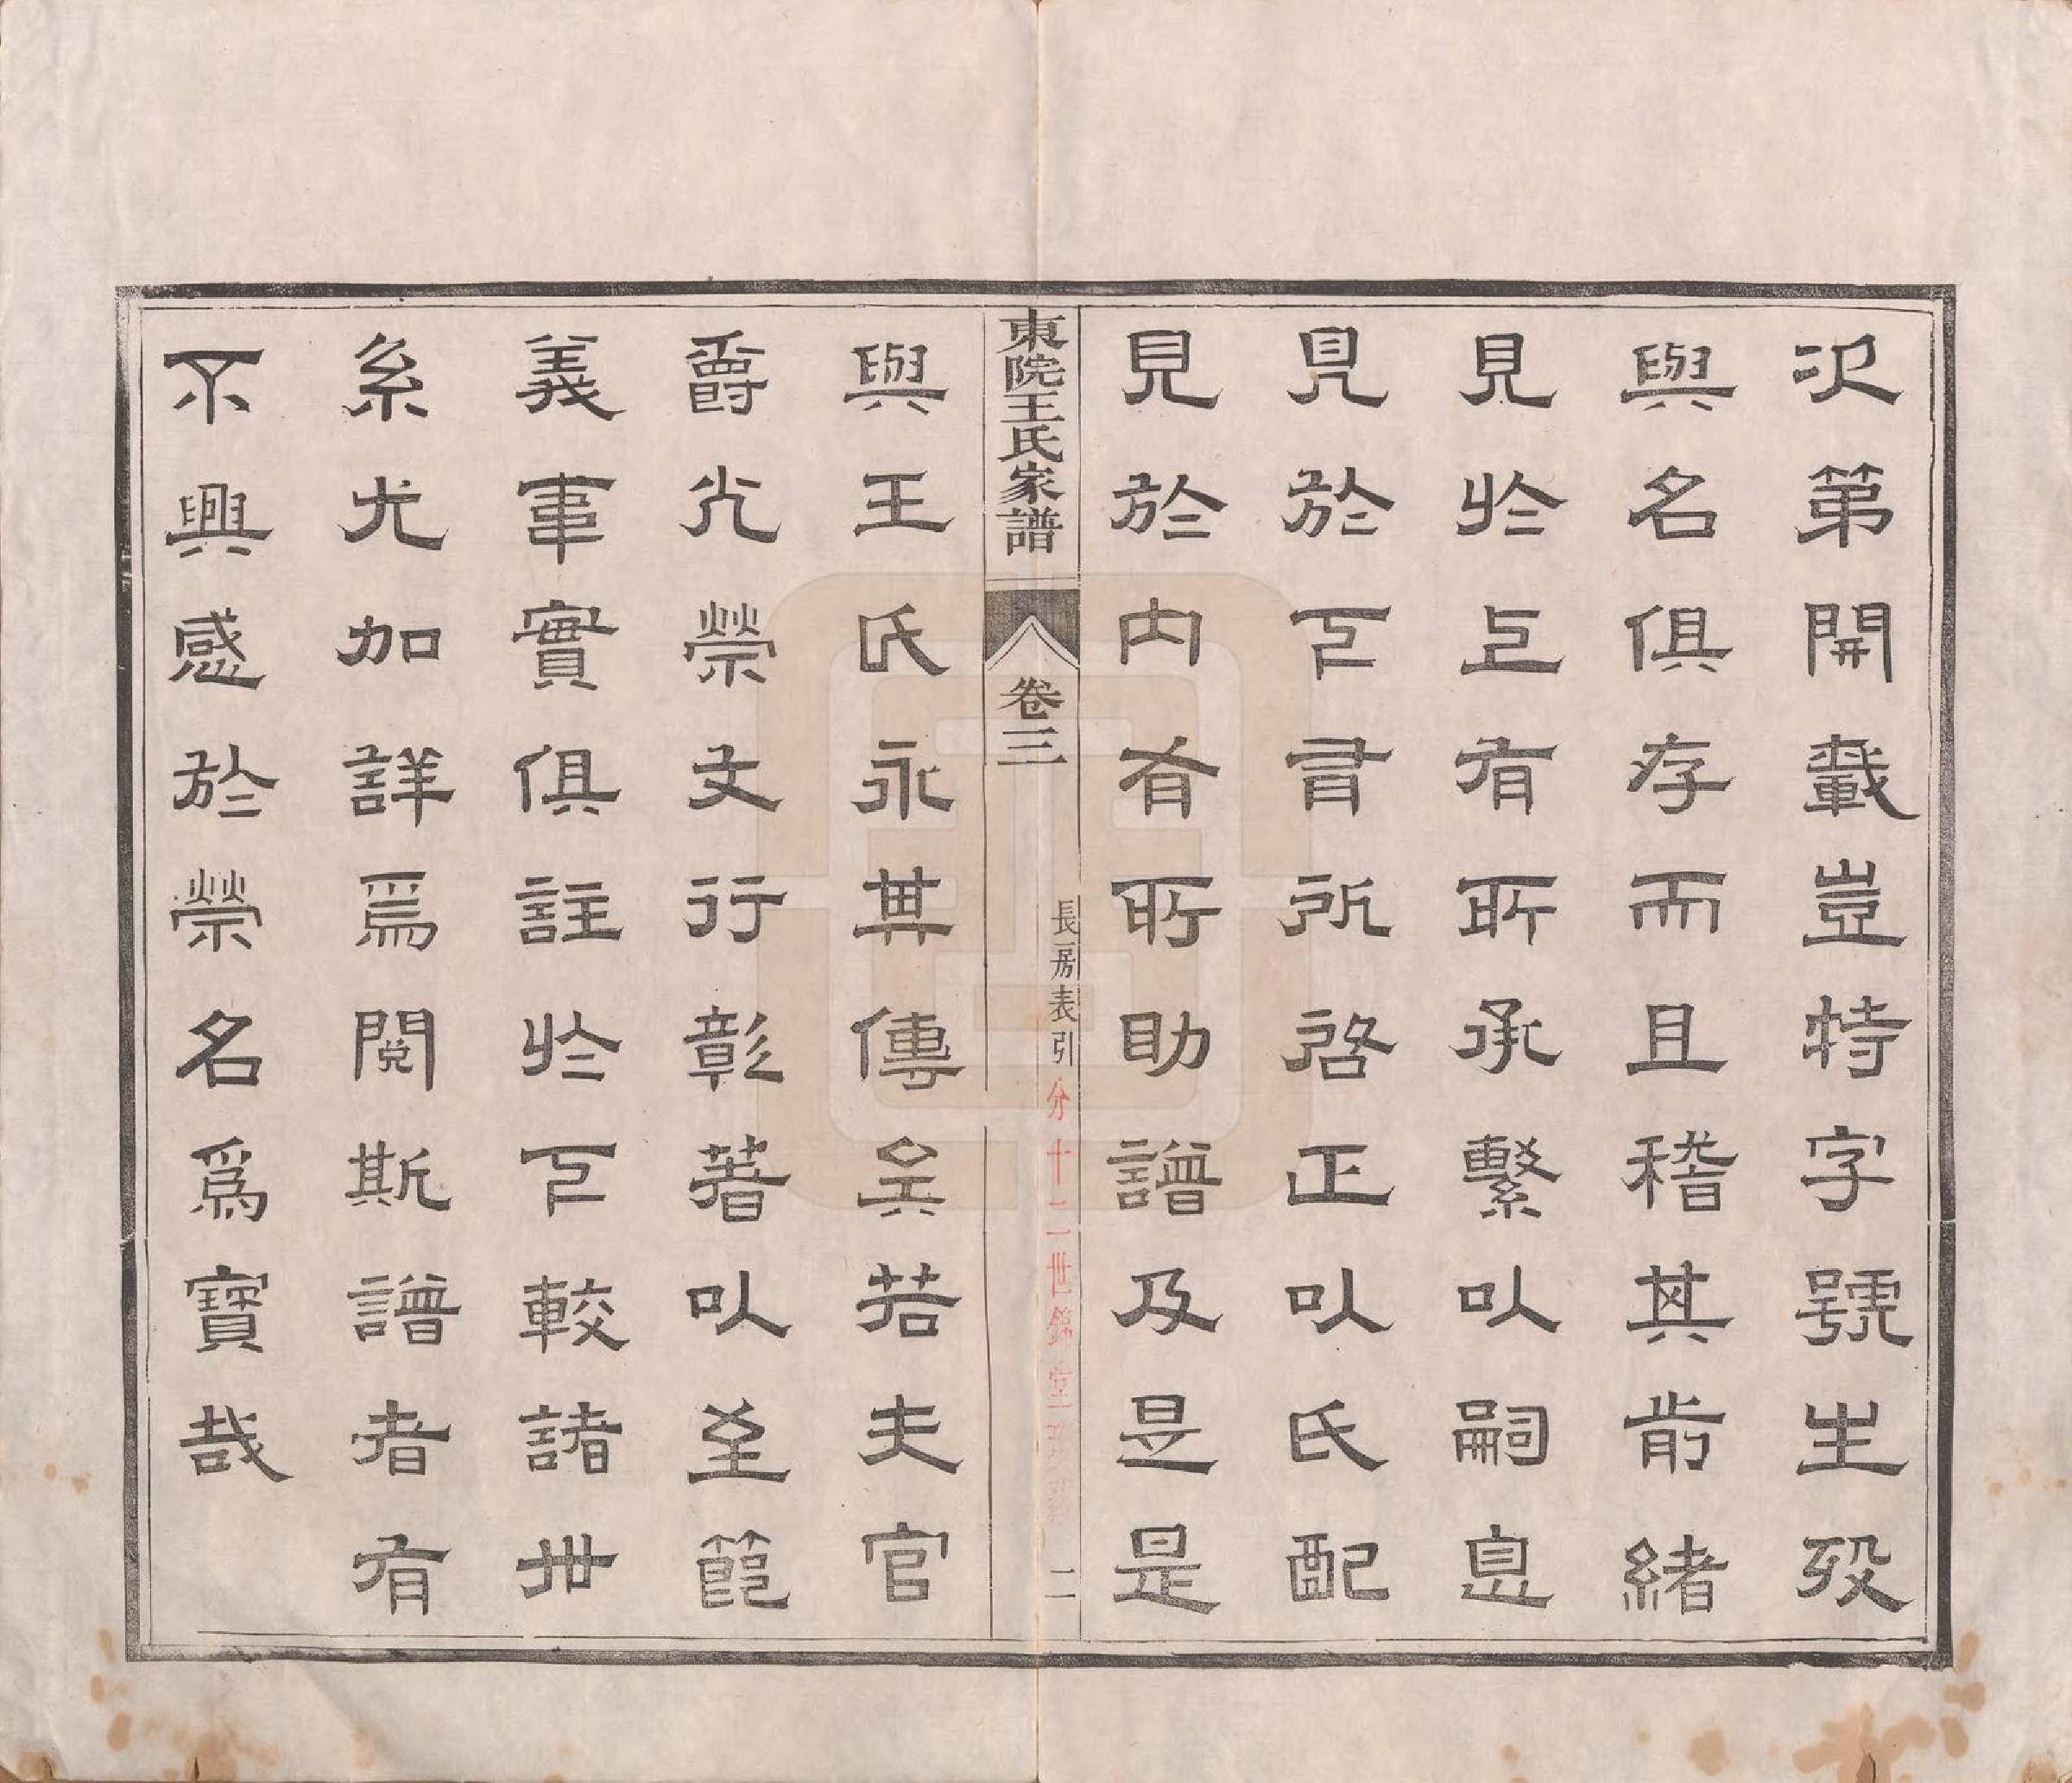 次第開載豈特字號生殁
與名俱存而且稽其前緒
見於上有所承繫以嗣息
見於下有所啓正以氏配
見於內有所助譜及是是
東院王氏家譜
卷三
長房表引
分十二世錦堂
二
與王氏永其傳矣若夫官
爵光榮文行彰著以至節
義事實俱註於下較諸世
系尤加詳焉閱斯譜者有
不興感於榮名爲寶哉